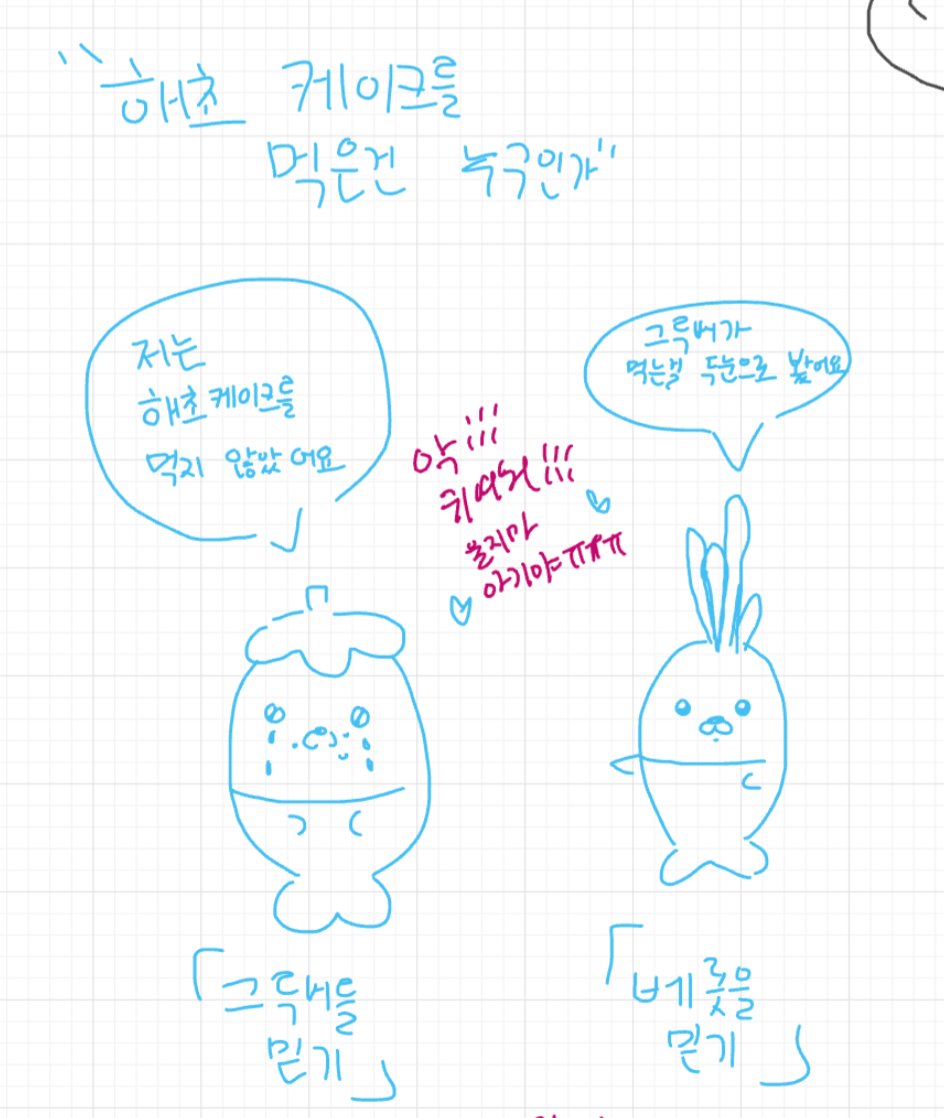 "해초 케이크를
먹은건 누구인가"
저는
해초케이크를
먹지 않았어요
그룩버가
먹는걸 두눈으로 봤어요
악!!!
귀여워!!!
울지마
아기야ㅠㅠㅠ
「그룩버를
믿기」
「베룻을
믿기」